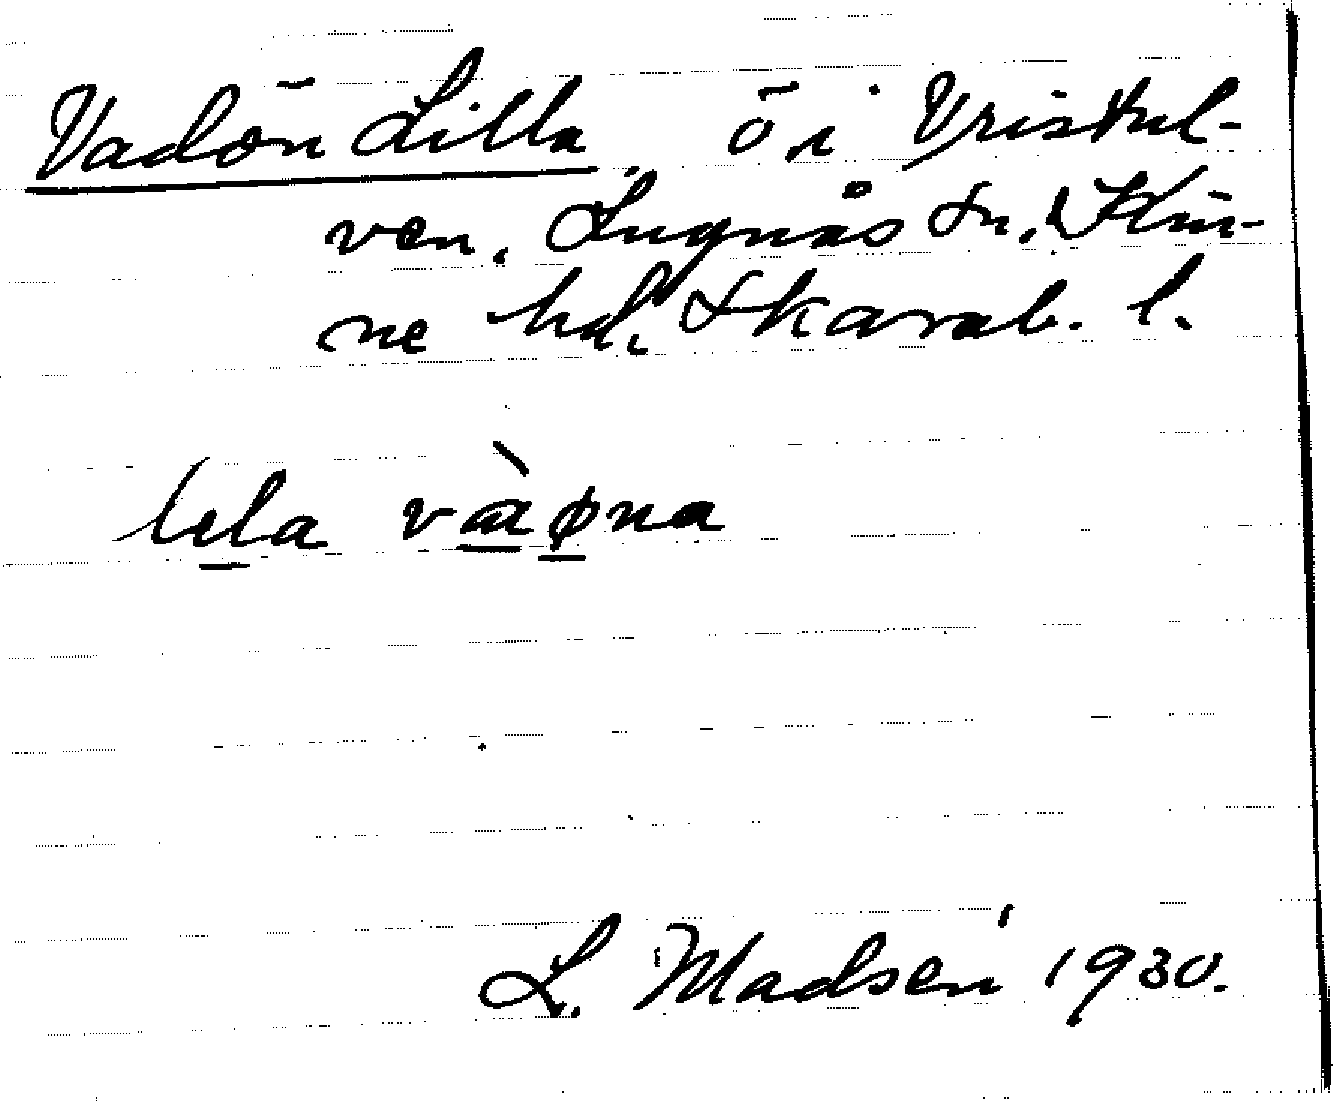 Vadön Lilla ö i Vristul-
ven, Lugnås sn. Kin-
ne hd. Skarab. l.
lela væ̀øna
L. Madsén 1930.